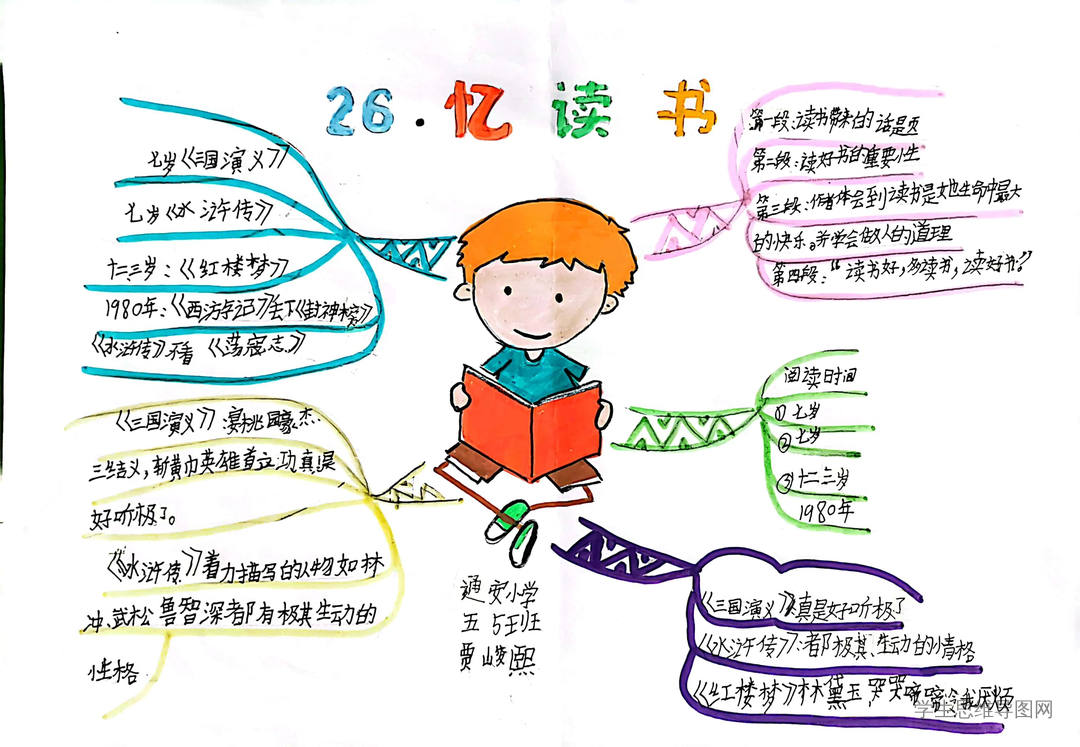 26.忆读书
七岁《三国演义》
七岁《水浒传》
十二三岁:《红楼梦》
1980年:《西游记》去下《封神榜》
《水浒传》不看《荡寇志》
《三国演义》:宴桃园豪杰
三结义,斩黄巾英雄首立功真是
好听极了。
《水浒传》着力描写的人物如林
冲、武松鲁智深都有极其生动的
性格
第一段:读书带来的话是页
第二段:读好书的重要性
第三段:作者体会到读书是她生命中最大
的快乐。并学会做人的道理
第四段:“读书好,多读书,读好书?”
阅读时间
①七岁
②七岁
③十二三岁
1980年
《三国演义》真是好听极了
《水浒传》:都极其生动的情格
《红楼梦》林黛玉,哭哭啼啼令我厌烦
通安小学
五5班
贾峻熙
学生思维导图网